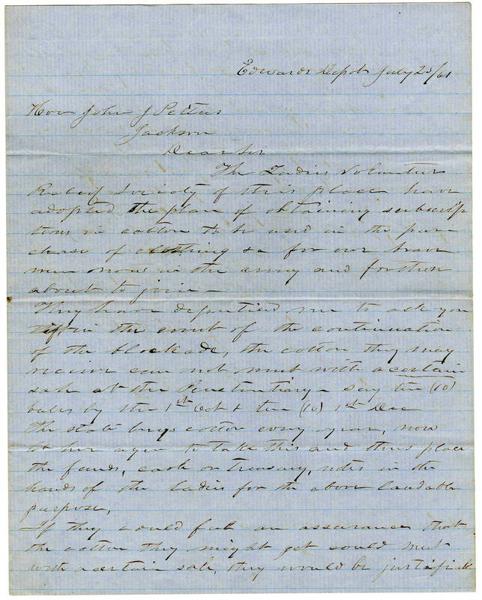 Edwards Depot July 23/61
Hon John J Pettus
Jackson
Dear Sir
The Ladies Volunteer
Relief Society of this place have
adopted the plan of obtaining subscrip
tions in cotton to be used in the pur
chase of clothing &c for our brave
men now in the army and for those
about to join -
They have deputised me to ask you
if in the event of the continuation
of the blockade, the cotton they may
receive can not meet with a certain
sale at the Penitentiary - say ten (10)
bales by the 1st Oct & ten (10) 1st Dec
The state buys cotton every year, now
let her agree to take this and thus place
the funds, cash or treasury notes in the
hands of the ladies for the above laudable
purpose,
If they could feel an assurance that
the cotton they might get could meet
with a certain sale, they would be justified